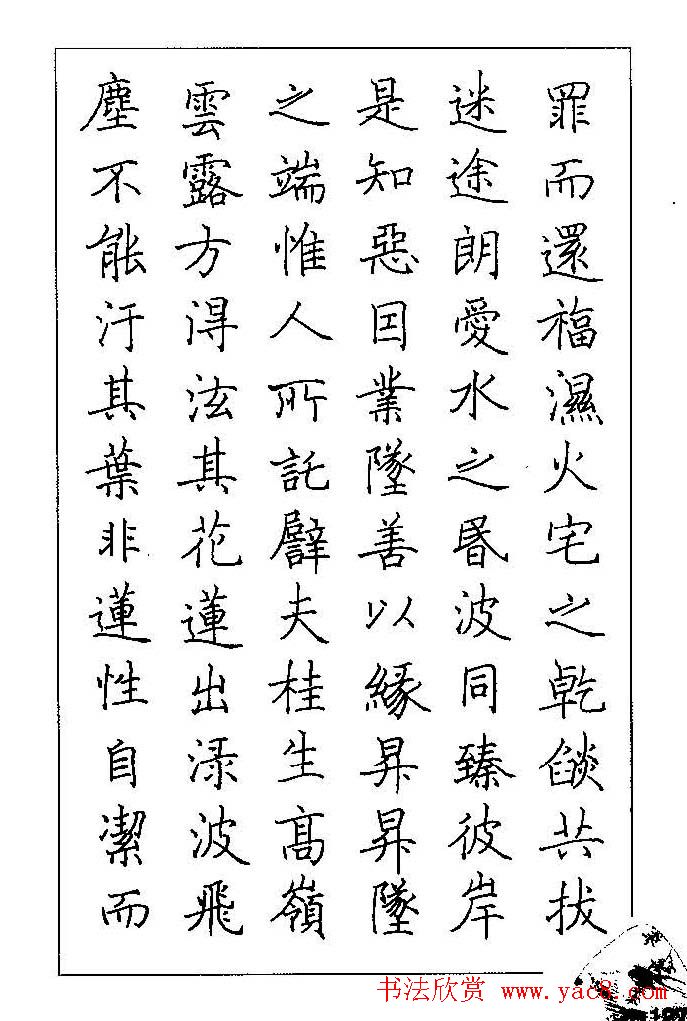 罪而還福濕火宅之乾燄共拔
迷途朗愛水之昬波同臻彼岸
是知惡因業墜善以緣昇昇墜
之端惟人所託譬夫桂生高嶺
雲露方得泫其花蓮出渌波飛
塵不能汙其葉非蓮性自潔而
书法欣赏 www.yac8.com